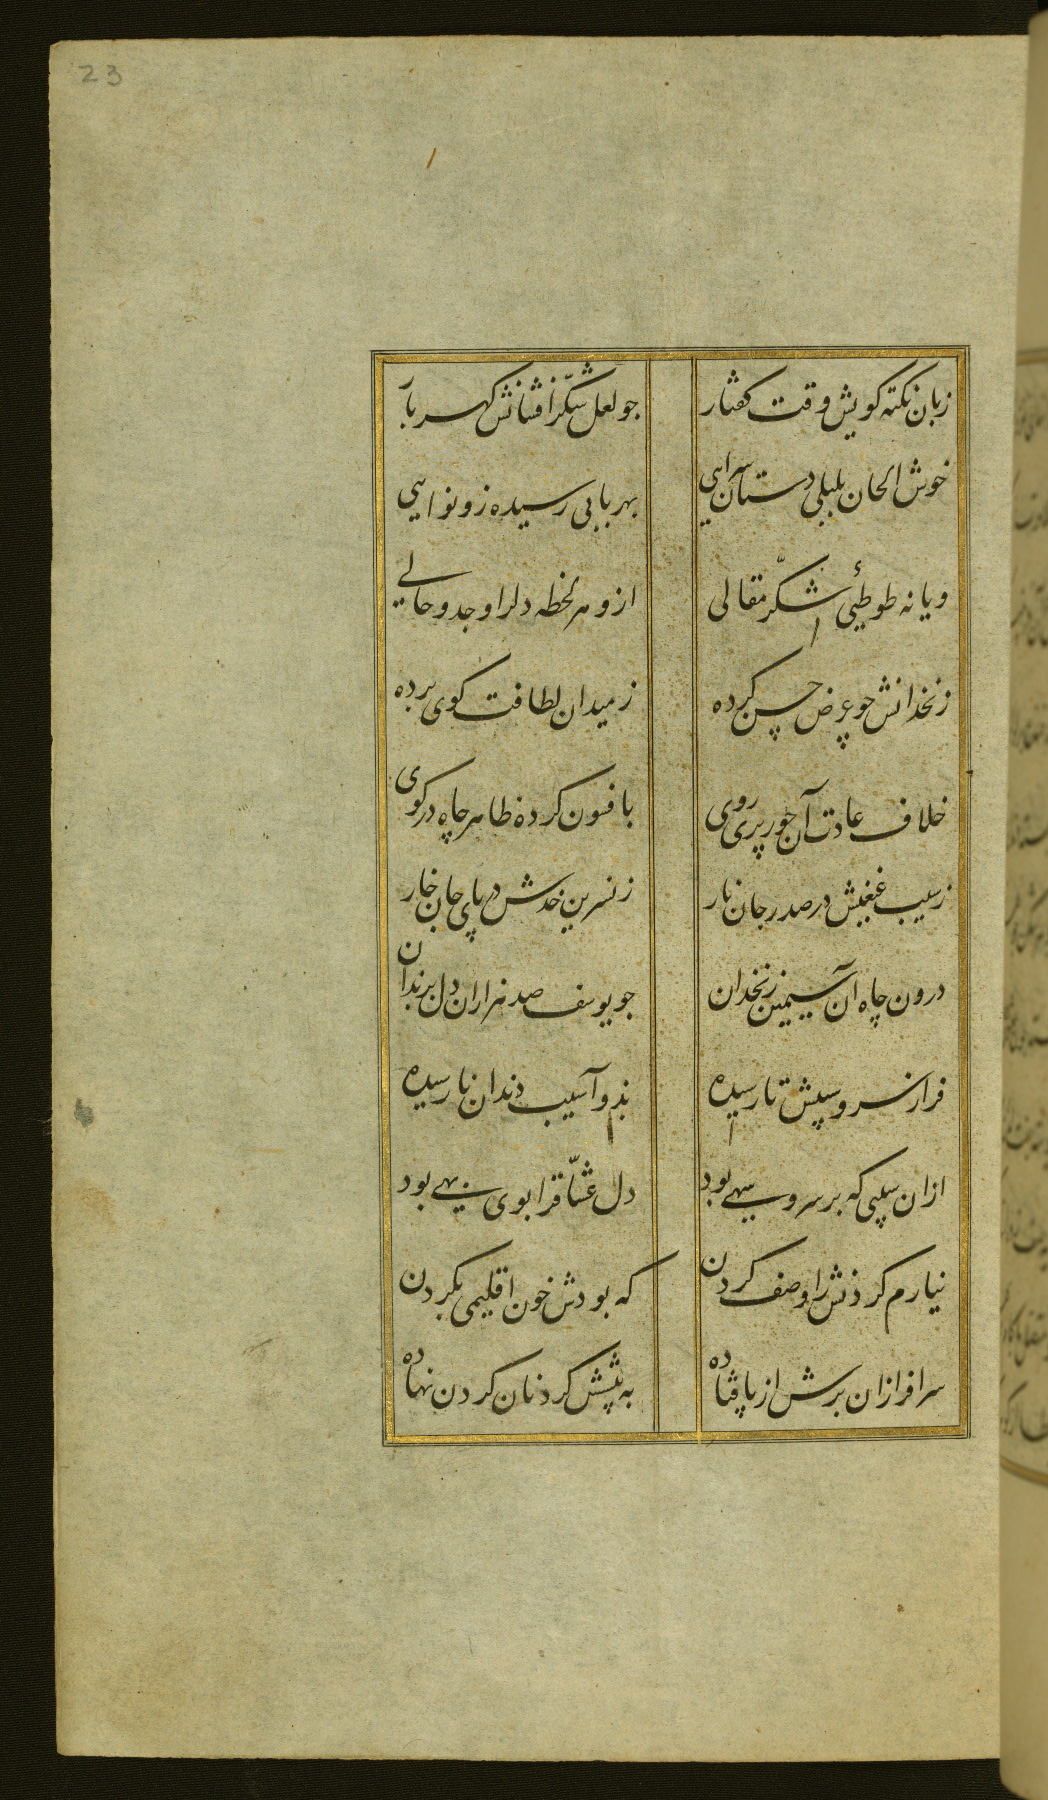 23
زبان نکته کویش وقت کفتار
جو لعل شکّر افشانش کهربار
خوش الحان بلبلی دستان سرایی
بهر بابی رسیده زو نوایی
و یا نه طوطیٔی شکّر مقالی
ازو هر لحظه دلرا وجد و حالی
زنخدانش جو عرض حسن کرده
ز میدان لطافت کوی برده
خلاف عادت آن حور پری روی
بافسون کرده ظاهر جاه در کوی
ز سیب غبغبش در صدر جان نار
ز نسرین خدش در پای جان خار
درون جاه آن سیمین زنخدان
جو یوسف صد هزاران دل بزندان
فراز سرو سیبش تا رسیده
بذو آسیب دندان نارسیده
ازان سیبی که بر سرو سهی بود
دل عشّاقرا بوی بهی بود
نیارم کردنش را وصف کردن
که بودش خون اقلیمی بکردن
سرافرازان برش از پا فتاده
به پیشش کردنان کردن نهاده